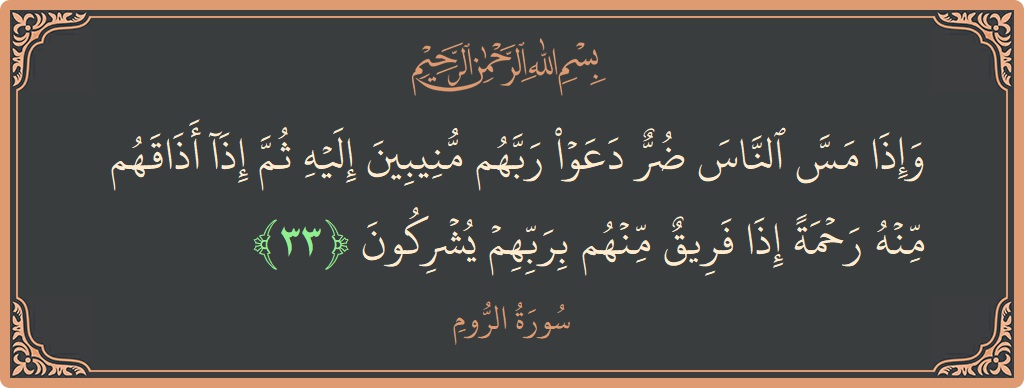 بِسْمِ اللهِ الرَّحْمٰنِ الرَّحِيْمِ
وَإِذَا مَسَّ ٱلنَّاسَ ضُرٌّ دَعَوْا۟ رَبَّهُم مُّنِيبِينَ إِلَيْهِ ثُمَّ إِذَآ أَذَاقَهُم
مِّنْهُ رَحْمَةً إِذَا فَرِيقٌ مِّنْهُم بِرَبِّهِمْ يُشْرِكُونَ ﴿٣٣﴾
سُورَةُ الرُّومِ